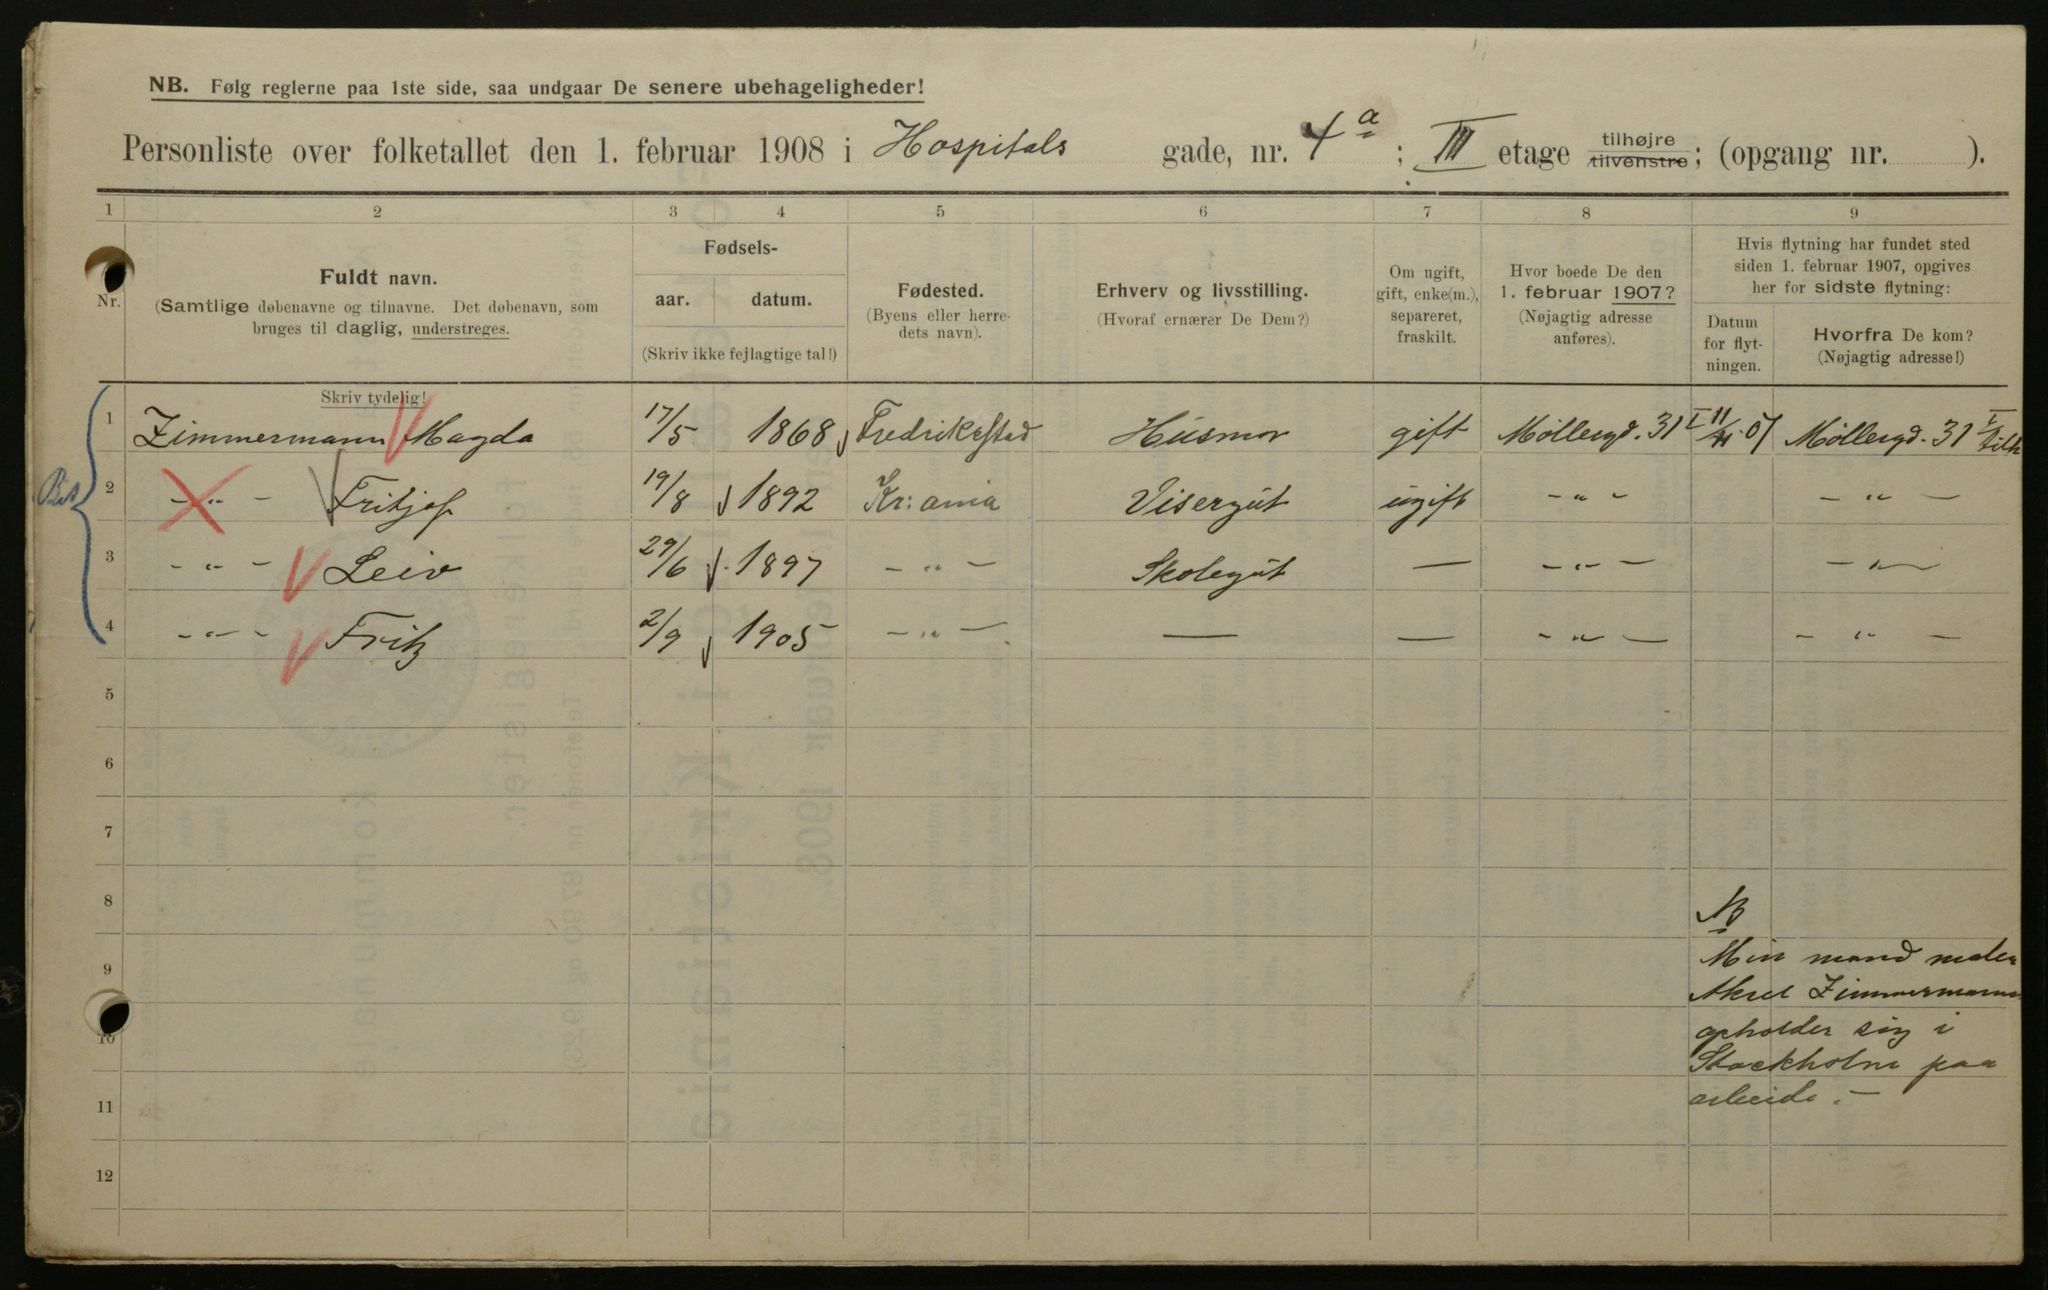 NB. Følg reglerne paa 1ste side, saa undgaar De senere ubehageligheder!
Personliste over folketallet den 1. februar 1908 i Hospitals gade, nr. 4a ; III etage tilhøjre tilvenstre; (opgang nr. ).
1 2 3 4 5 6 7 8 9
Nr.
Fuldt navn.
(Samtlige døbenavne og tilnavne. Det døbenavn, som
bruges til daglig, understreges.
Skriv tydelig!
Fødsels-
aar. datum.
(Skriv ikke fejlagtige tal!)
Fødested.
(Byens eller herre-
dets navn).
Erhverv og livsstilling.
(Hvoraf ernærer De Dem?)
Om ugift,
gift, enke(m.),
separeret,
fraskilt.
Hvor boede De den
1. februar 1907?
(Nøjagtig adresse
anføres).
Hvis flytning har fundet sted
siden 1. februar 1907, opgives
her for sidste flytning:
Datum
for flyt-
ningen.
Hvorfra De kom?
(Nøjagtig adresse!)
1 Zimmermann Magda 17/5 1868 Fredrikestad Husmor gift Møllergd. 31 I 11/11 07 Møllergd. 31 I tilh
2 -"- Fritjof 19/8 1892 Kr:ania Visergut ugift -"- -"-
3 -"- Leiv 29/6 1897 -"- Skolegut — -"- -"-
4 -"- Fritz 2/9 1905 -"- — — -"- -"-
5
6
7
8
9
10
11
12
NB
Min mand maler
Aksel Zimmermann
opholder sig i
Stockholm paa
arbeide.-